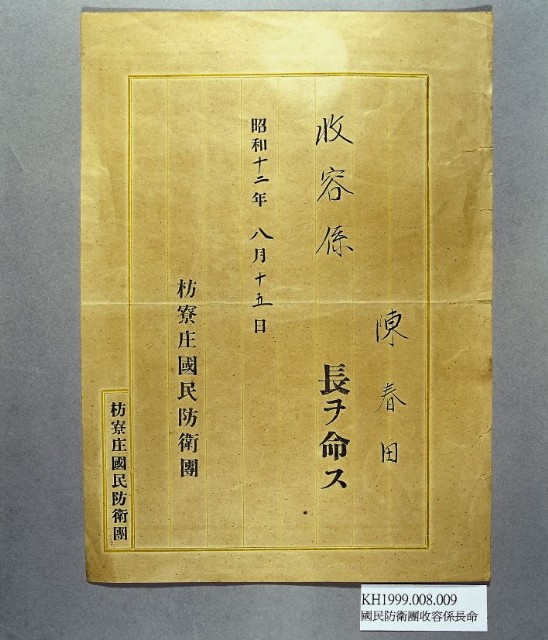 陳春田
收容係長ヲ命ス
昭和十二年八月十五日
枋寮庄國民防衛團
枋寮庄國民防衛團
KH1999.008.009
國民防衛團收容係長命